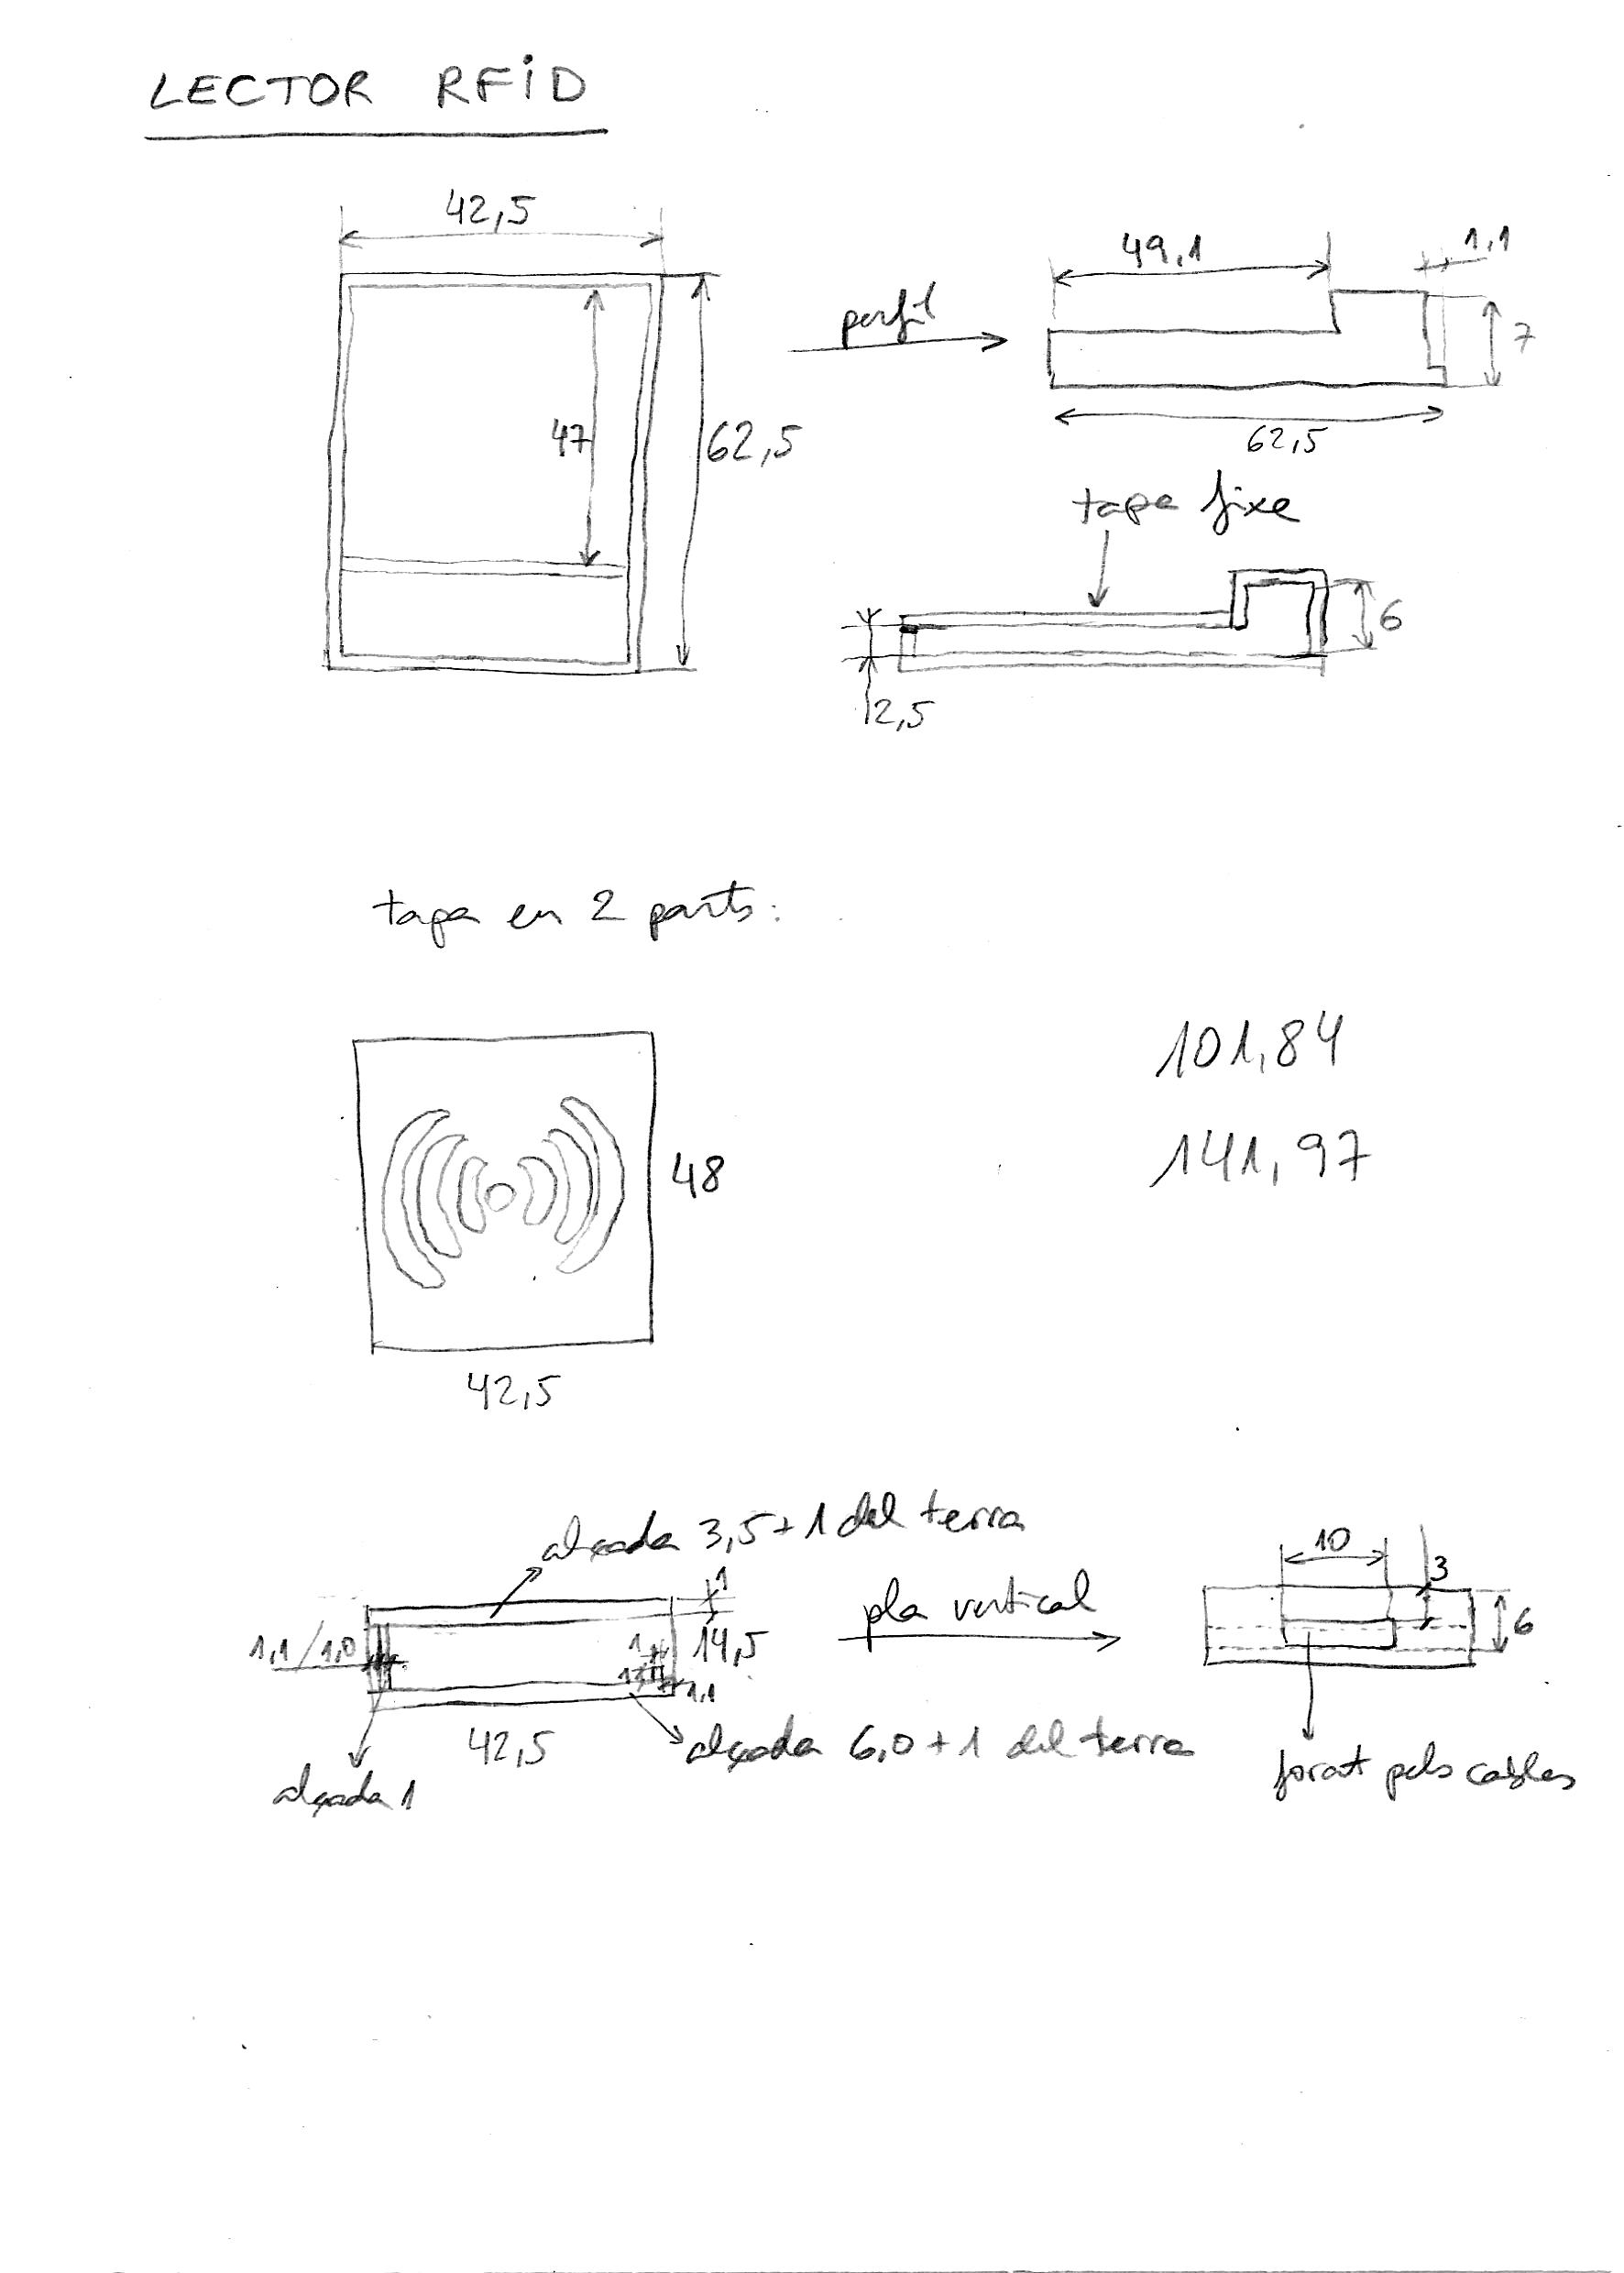 LECTOR RFiD
42,5
47
62,5
perfil
49,1
1,1
7
62,5
tapa fixa
6
2,5
tapa en 2 parts:
48
42,5
101,84
141,97
alçada 3,5+1 del terra
1
14,5
1,1/1,0
1
1
1,1
42,5
alçada 6,0+1 del terra
alçada 1
pla vertical
10
3
6
forat pels cables